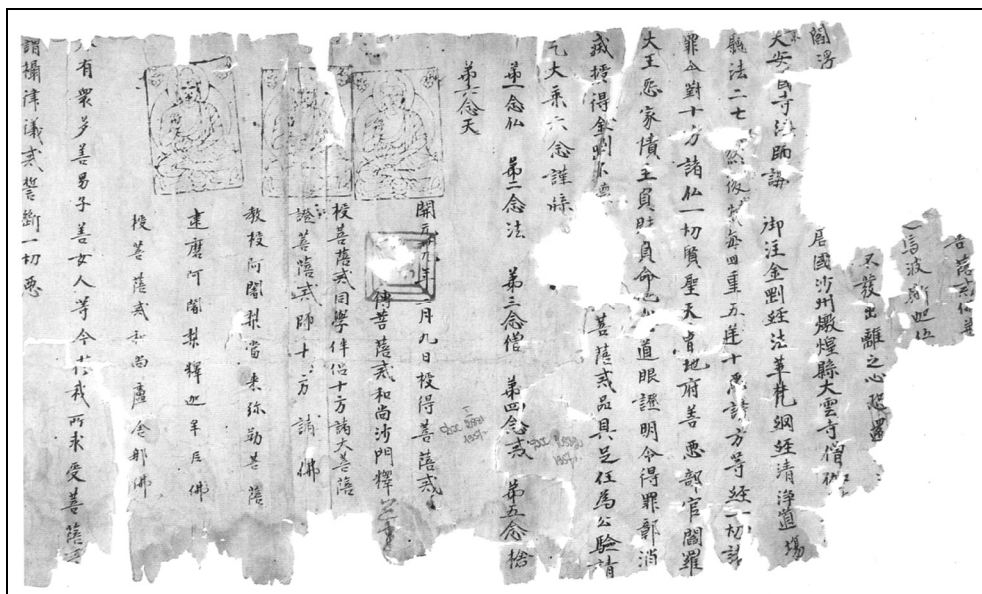 菩薩戒
波羅
不發出離之心恐還
閻浮 居國沙州燉煌縣大雲寺僧
大安寺法師講 御注金剛經法華梵綱經清淨道場
聽法二七 終後 每四重五逆十惡謗方等經一切諸
罪今對十方諸仏一切賢聖天曹地府善惡部官閻羅
大王惡家債主負財負命 道眼證明令得罪鄣消
滅獲得金剛不 菩薩戒品具足任為公驗請
乞大乘六念謹牒
第一念仏 第二念法 第三念僧 第四念戒 第五念捨
第六念天
開元廿九年二月九日授得菩薩戒
傳菩薩戒和尚沙門釋
授菩薩戒同學伴侶十方諸大菩薩
證菩薩戒師十方諸佛
教授阿闍梨當來弥勒菩薩
達磨阿闍梨釋迦牟尼佛
授菩薩戒和尚盧舍那佛
有衆多善男子善女人等今於我所求受菩薩
謂攝律儀戒誓斷一切惡